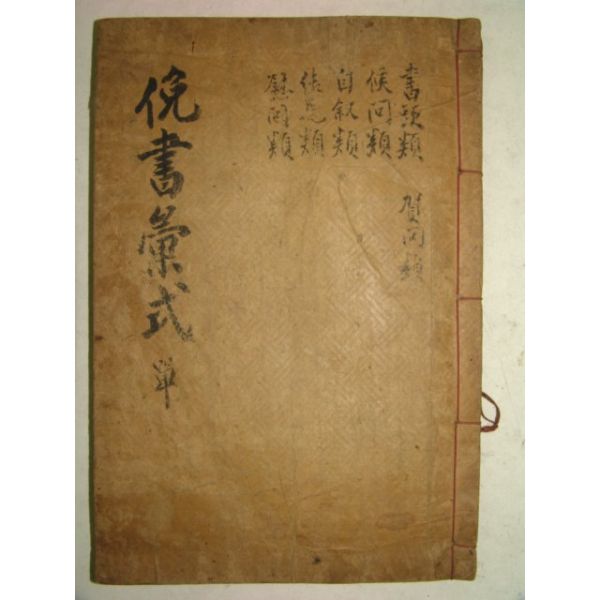 書頭類 賀問類
候問類
自叙類
結尾類
慰問類
俛書彙式 單